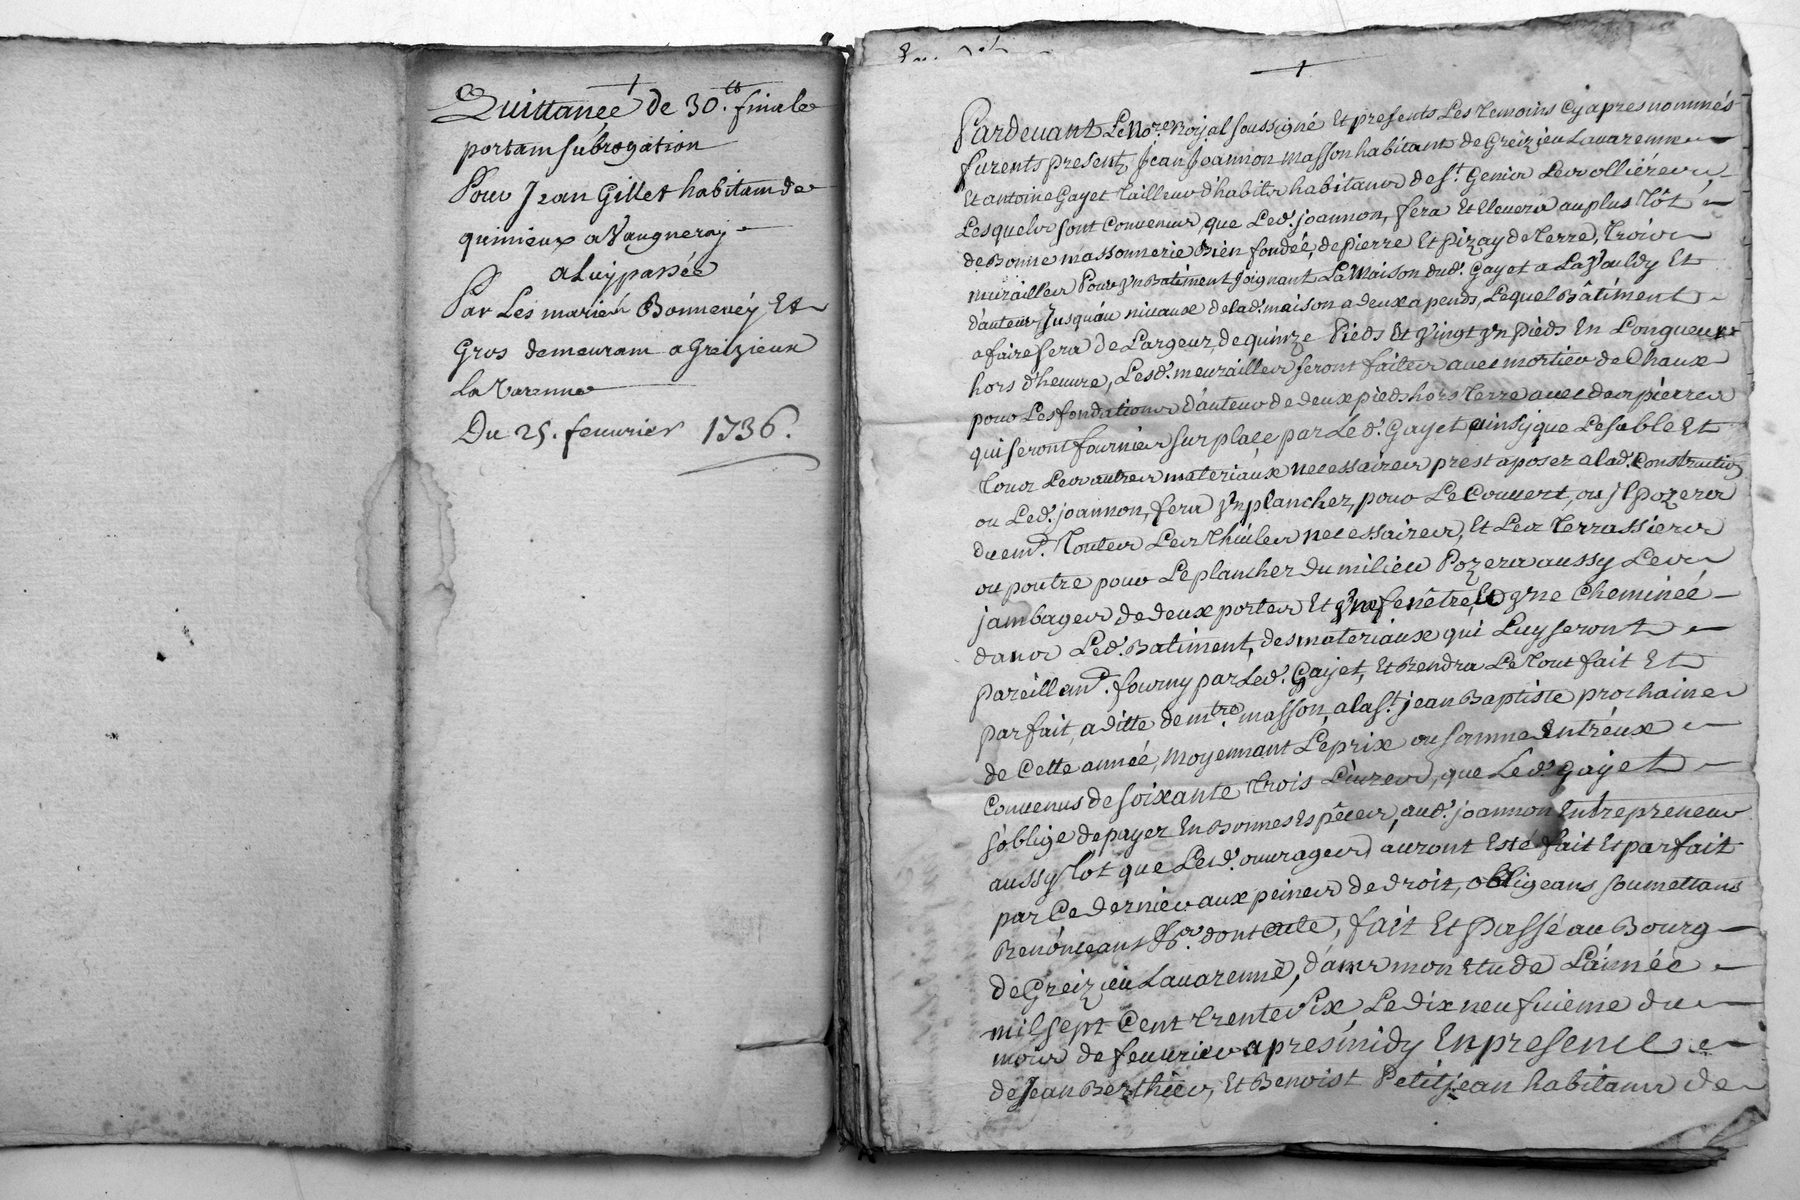 Quittance de 30.tt finale
portant subrogation
Pour Jean Gillet habitant de
quinieux a Vaugneray
a Luy passée
Par Les mariés Bonnevéy Et
Gros demeurant a Greizieux
La Varenne
Du 25. feuurier 1736.
Pardeuant Le No.re Roijal soussigné Et presents Les temoins Cy apres nommés
furents present, Jean Joannon masson habitant de Greizieu Lauarenne
Et antoine Gayet tailleur d'habits habitans de s.t Genis Les ollières
Lesquels sont Conuenus que Led. joannon, fera Et Eleuera au plus tôt
de Bonne massonnerie Bien fondée, de pierre Et Pizay de terre, trois
murailles Pour yn Batiment Joignant La Maison dud. Gayet a La Vauldy Et
d'auteur Jusqu'au niuaux de lad. maison a deux apends, Lequel Bâtiment
a faire sera de Largeur, de quinze Pieds Et Vingt yn Pieds En Longueur
hors d'heuure, Lesd. meurailles seront faites auec mortier de Chaux
pour Les fondations d'auteur de deux pieds hors terre auec des pierres
qui seront fournies sur place par Led. Gayet ainsy que Le sable Et
tous Les autres materiaux necessaires prest a poser a lad. Construction
ou Led. joannon, fera yn plancher, pour Le Couuert, ou jl pozera
du em.t toutes Les thuiles necessaires, Et Les terrassiers
ou poutre pour Le plancher du milieu Pozera aussy Les
jambages de deux portes Et yne fenêtre, Et yne Cheminéé
dans Led. Batiment, des materiaux qui Luy seront
pareillem.t fourny par Led. Gayet, Et Rendra Le tout fait Et
parfait, a ditte de m.tre masson, a la s.t jean Baptiste prochaine
de Cette année, moyennant Le prix ou somme Entréux
Conuenus de soixante trois Liures, que Led. Gayet
s'oblige de payer En Bonnes Espêces, aud. joannon Entrepreneur
aussy tôt que Lesd. ouurages auront Esté fait Et parfait
par Ce dernier aux peines de droit, obligeans soumettans
Renônceans &c. dont acte, fait Et Passé au Bourg
de Greizieu Lauarenne, dans mon Etude L'année
mil sept Cent trente six Le dix neufuieme du
mois de feuurier apres midy En presence
de Jean Berthier, Et Benoist Petitjean habitans de